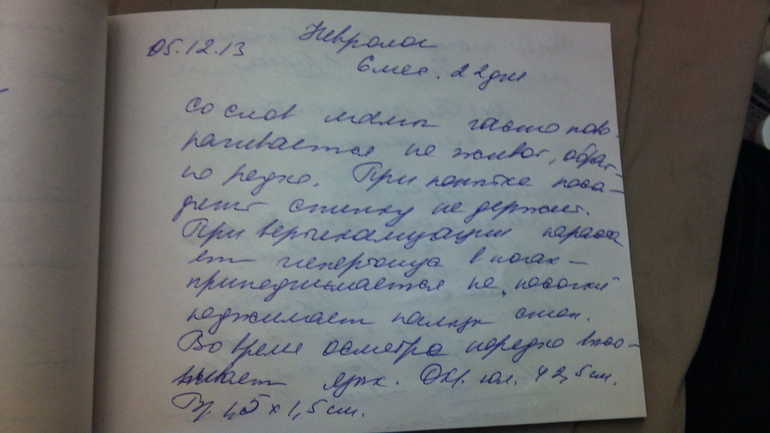 05.12.13 Невролог
6 мес. 22 дня
Со слов мамы часто пово-
рачивается на живот, обрат-
но редко. При попытке поса-
дить спинку не держит.
При вертикализации нараста
ет гипертонус в ногах –
приподнимается на носочки
поджимает пальцы стоп.
Во время осмотра нередко высо-
вывает язык. Окр. гол. 42,5 см.
1,5 х 1,5 см.